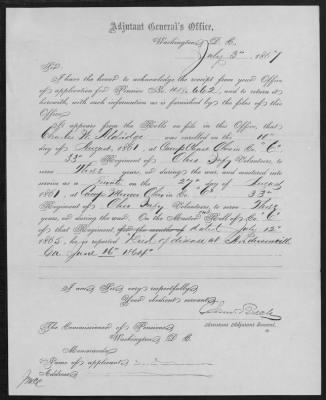 Adjutant General's Office,
Washington, D. C.
July 3rd, 1867
Sir:
I have the honor to acknowledge the receipt from your Office
of application for Pension No. 662, and to return it
herewith, with such information as is furnished by the files of this
Office.
It appears from the Rolls on file in this Office, that
Charles W. Aldridge was enrolled on the
day of August, 1861, at Camp Ohio in Co. "C"
33rd Regiment of Ohio Infy Volunteers, to
serve three years, or during the war, and mustered into
service as a Private on the 27th day of August
1861, at Camp Ohio in Co. "C" 33rd
Regiment of Ohio Infy Volunteers, to serve three
years, or during the war. On the Muster Roll of Co. "C"
of that Regiment for the month of dated July 12th
1865, he is reported "Died of disease at Andersonville
Ga June 16th 1864"
I am, Sir, very respectfully,
Your obedient servant,
Assistant Adjutant General.
The Commissioner of Pensions
Washington, D. C.
Memoranda
Name of applicant
Address